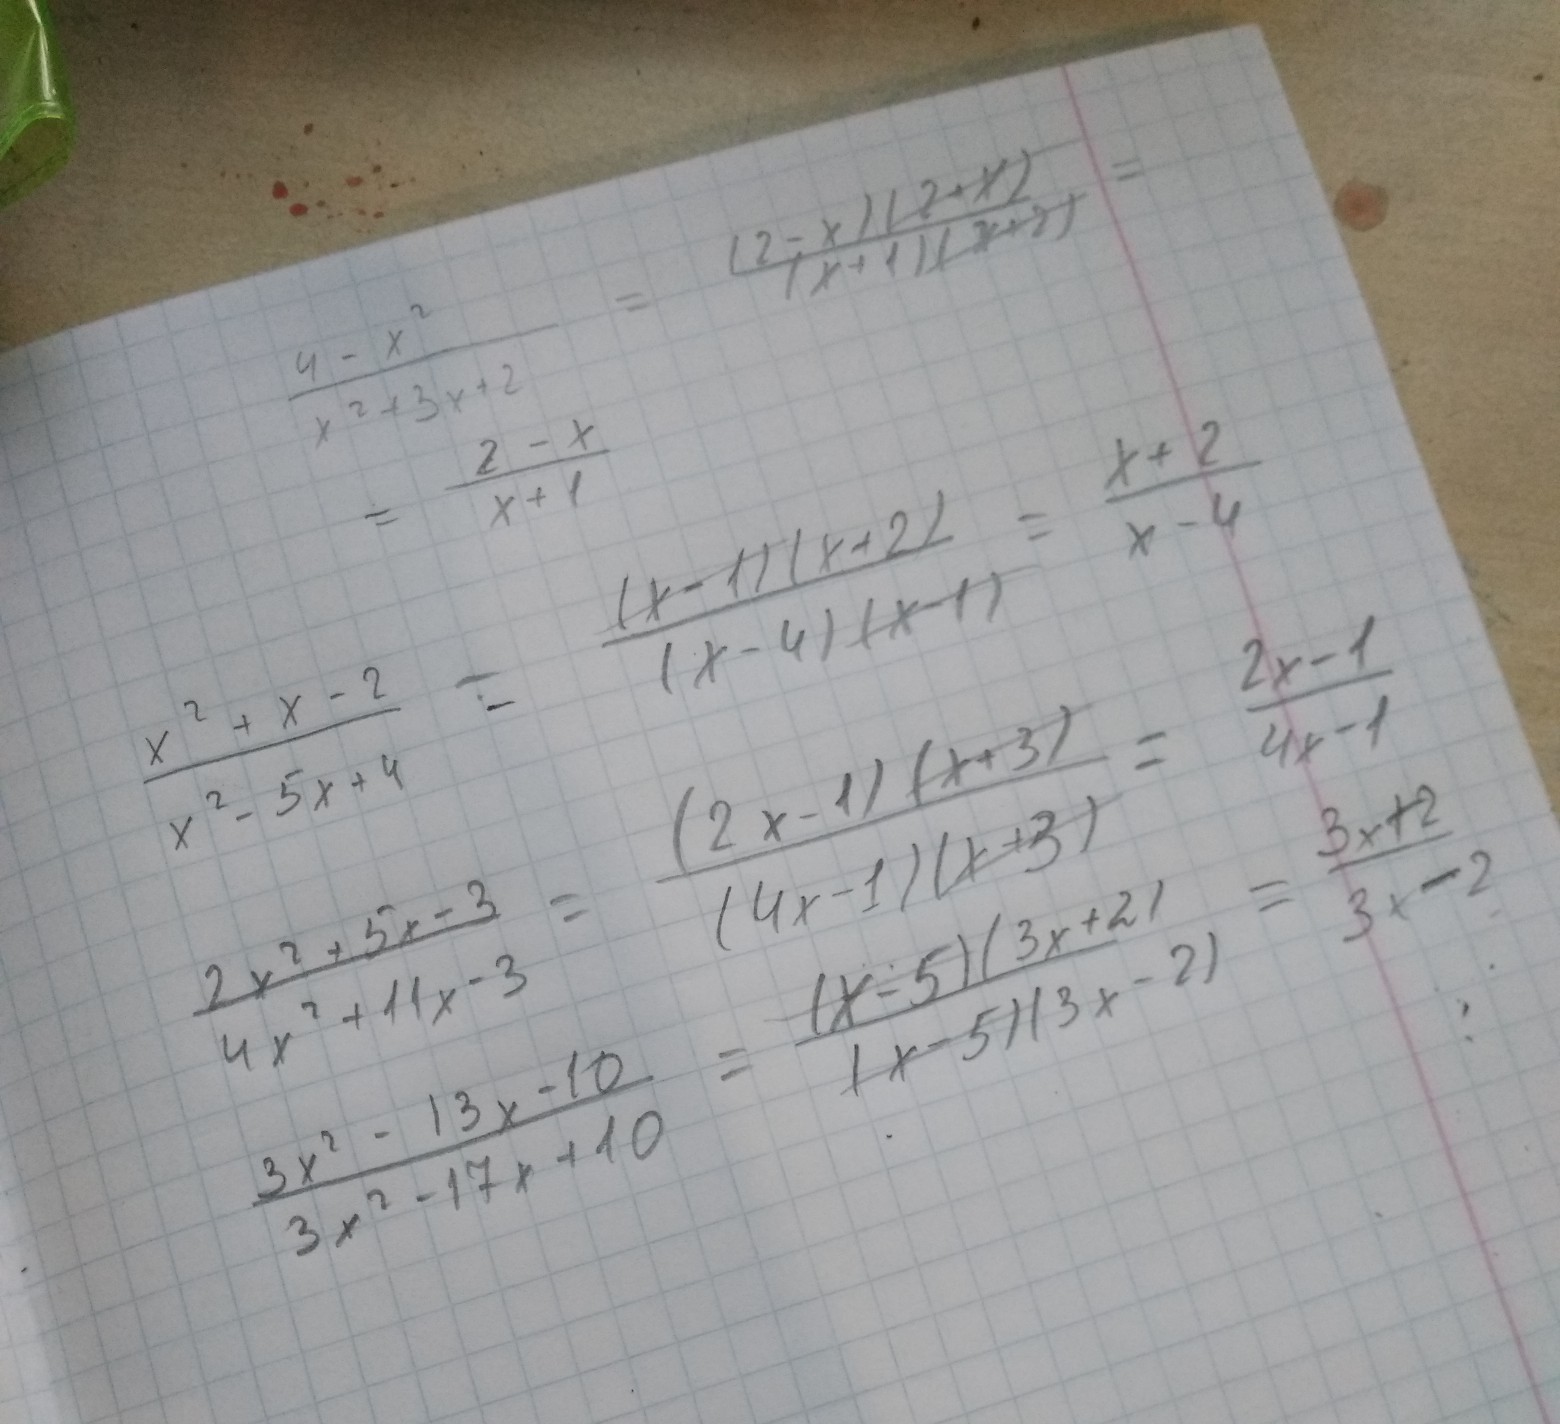 4 - x² / x² + 3x + 2 = (2 - x)(2 + x) / (x + 1)(x + 2) =
= 2 - x / x + 1
x² + x - 2 / x² - 5x + 4 = (x - 1)(x + 2) / (x - 4)(x - 1) = x + 2 / x - 4
2x² + 5x - 3 / 4x² + 11x - 3 = (2x - 1)(x + 3) / (4x - 1)(x + 3) = 2x - 1 / 4x - 1
3x² - 13x - 10 / 3x² - 17x + 10 = (x - 5)(3x + 2) / (x - 5)(3x - 2) = 3x + 2 / 3x - 2